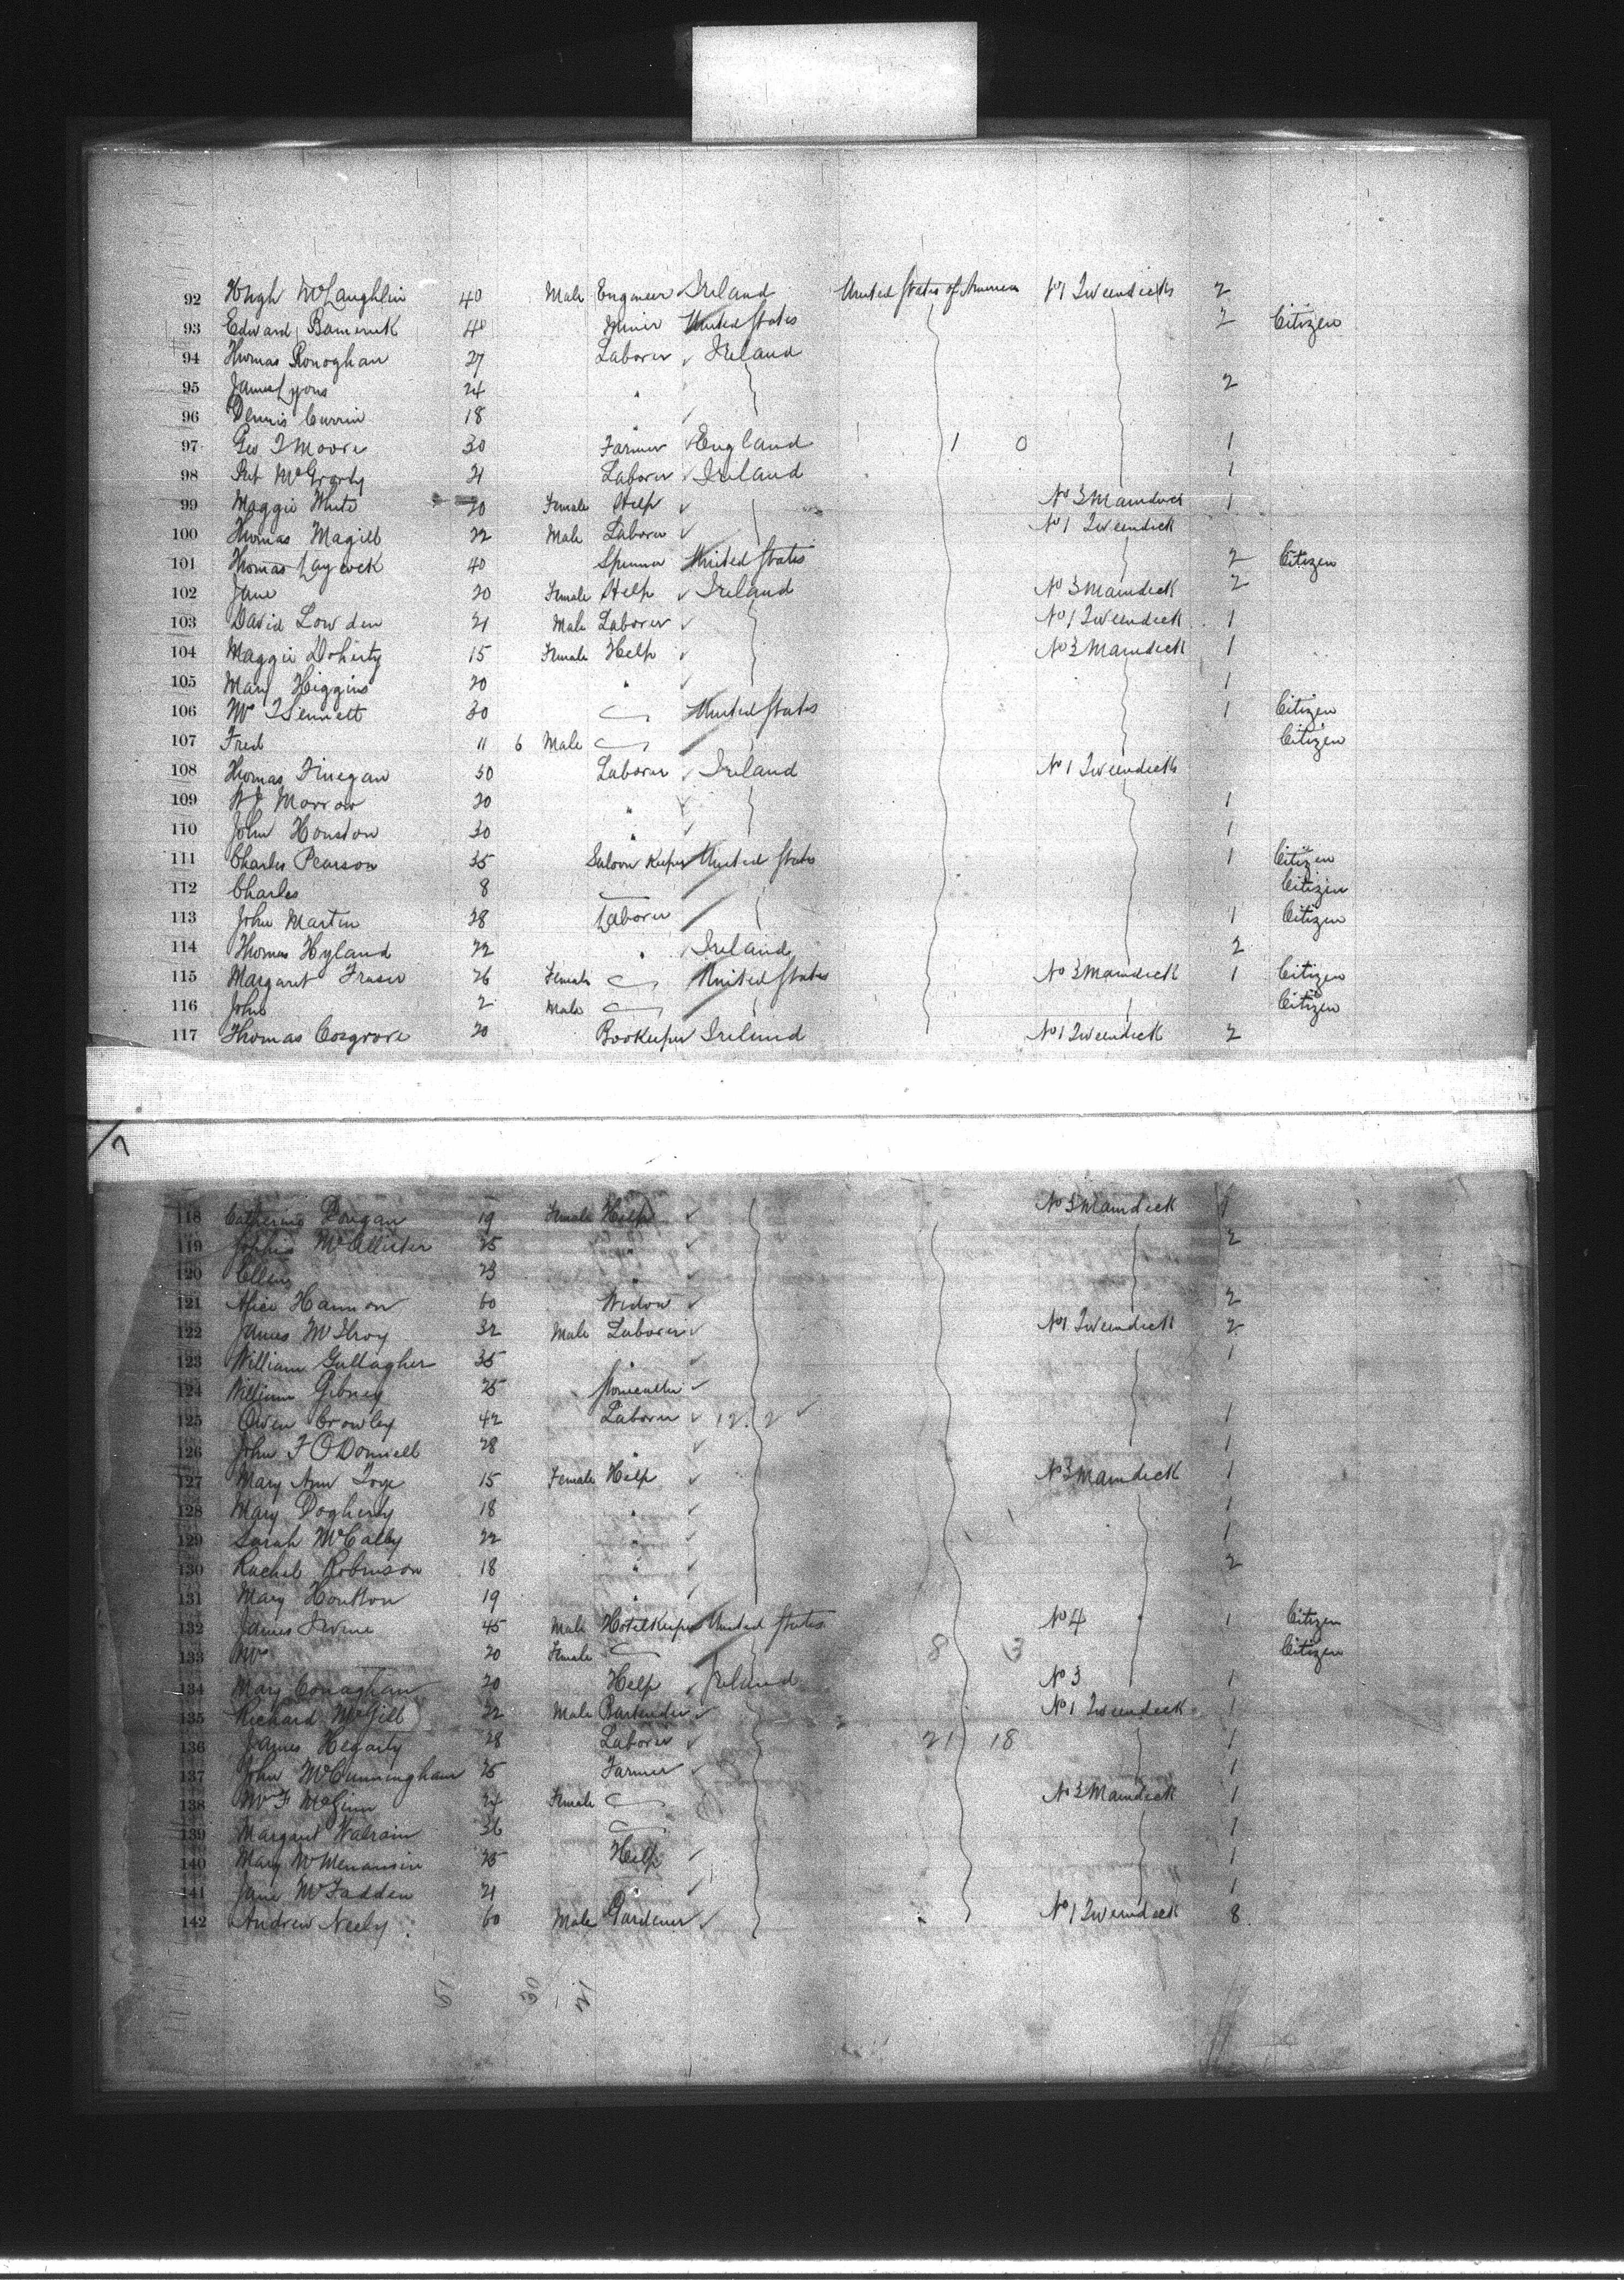 92 Hugh McLaughlin 40 Male Engineer Ireland United States of America No 1 Tweendeck 2
93 Edward Bamerick 48 Miner United States 2 Citizen
94 Thomas Ronoghan 27 Laborer Ireland
95 James Lyons 24 " 2
96 Dennis Currin 18 "
97 Geo T Moore 30 Farmer England 1 0 1
98 Pat McGrorty 21 Laborer Ireland 1
99 Maggie White 20 Female Help No 3 Maindeck 1
100 Thomas Magill 22 Male Laborer No 1 Tweendeck
101 Thomas Laycock 40 Spinner United States 2 Citizen
102 Jane 20 Female Help Ireland No 3 Maindeck 2
103 David Lowden 21 Male Laborer No 1 Tweendeck 1
104 Maggie Doherty 15 Female Help No 3 Maindeck 1
105 Mary Higgins 20 " 1
106 Mrs 30 United States 1 Citizen
107 Fred 11 6 Male Citizen
108 Thomas Finegan 30 Laborer Ireland No 1 Tweendeck
109 Morrow 20 " 1
110 John Houston 30 " 1
111 Charles Pearson 35 Saloon Keeper United States 1 Citizen
112 Charles 8 Citizen
113 John Martin 28 Laborer 1 Citizen
114 Thomas Hyland 22 " Ireland 2
115 Margaret Fraser 26 Female United States No 3 Maindeck 1 Citizen
116 John 2 Male Citizen
117 Thomas Cosgrove 20 Bookeeper Ireland No 1 Tweendeck 2
17
118 Catherine Dougan 19 Female Help No 3 Maindeck 1
119 Sophia McAllister 25 " 2
120 Ellen 23 "
121 Alice Hannon 60 Widow 2
122 James McIlroy 32 Male Laborer No 1 Tweendeck 2
123 William Gallagher 35 " 1
124 William Gibney 25 Stonecutter
125 Owen Crowley 42 Laborer 12 2 1
126 John F O'Donnell 28 " 1
127 Mary Ann 15 Female Help No 3 Maindeck 1
128 Mary Dogherty 18 " 1
129 Sarah McCally 22 " 1
130 Rachel Robinson 18 " 2
131 Mary Houston 19 "
132 James Irvine 45 Male Hotelkeeper United States No 4 " 1 Citizen
133 Mrs 20 Female 8 3 Citizen
134 Mary Conaghan 20 Help Ireland No 3 1
135 Richard McGill 22 Male Bartender No 1 Tweendeck 1
136 James Hegarty 28 Laborer 21 18 1
137 John McCunningham 25 Farmer 1
138 Mrs F McGinn 24 Female No 3 Maindeck 1
139 Margaret 36 1
140 Mary McMenamin 25 Help 1
141 Jane McFadden 21 " 1
142 Andrew Neely 60 Male Gardener No 1 Tweendeck 8
51 30 21